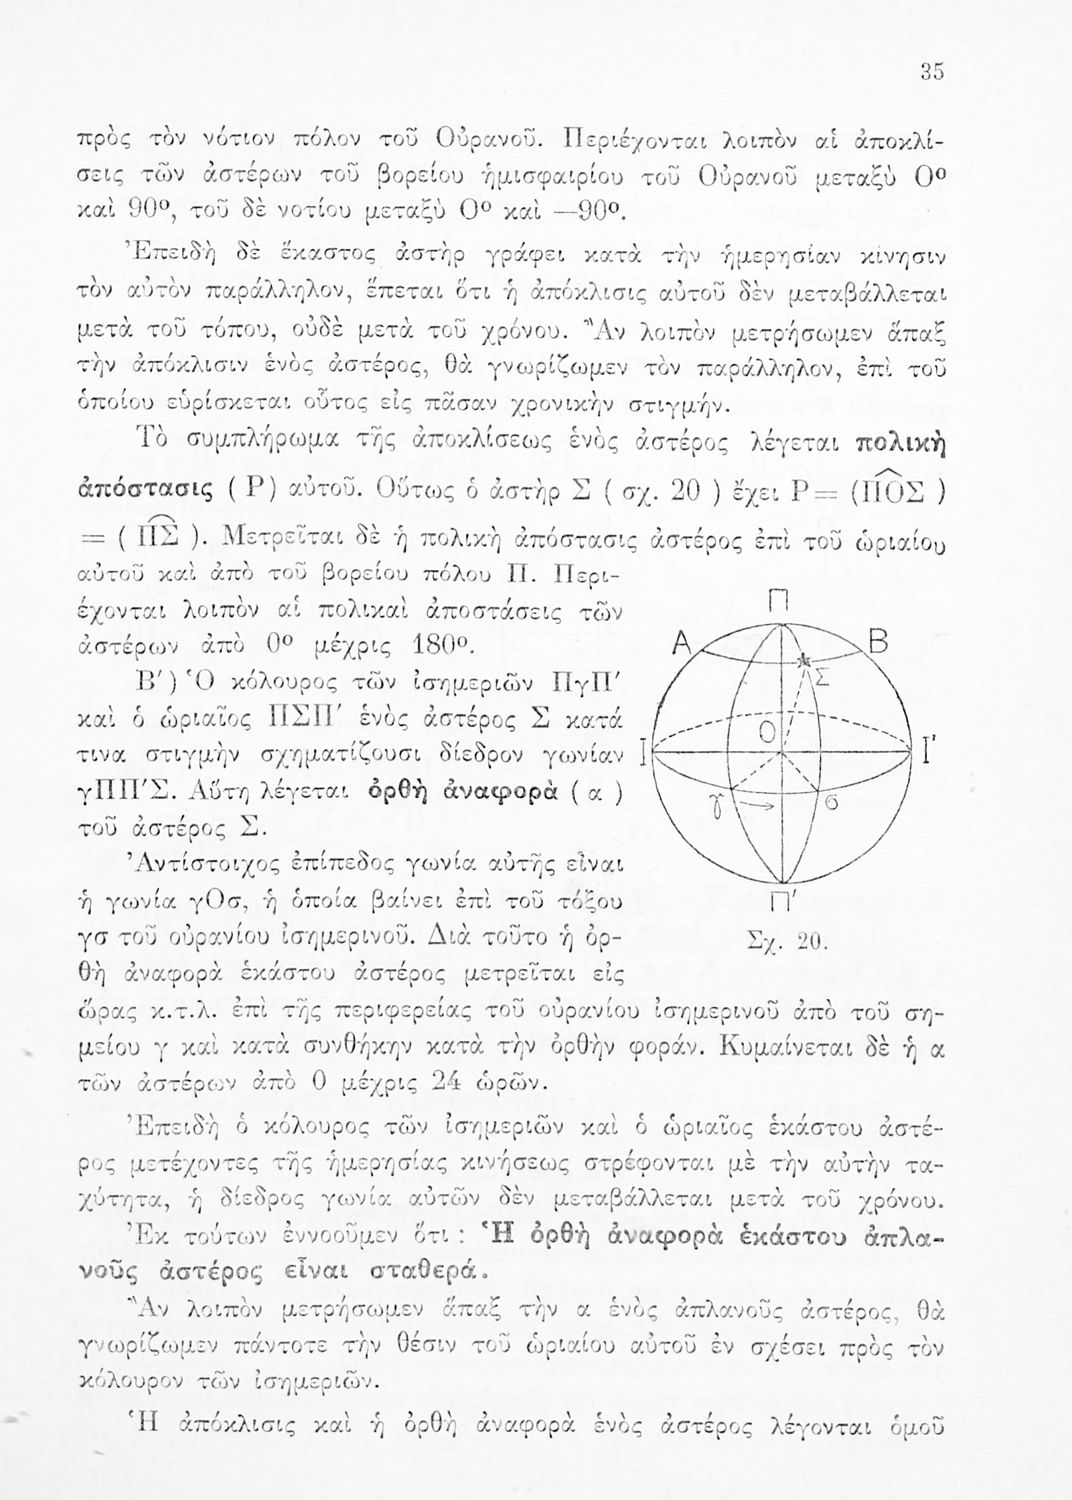 35
πρὸς τὸν νότιον πόλον τοῦ Οὐρανοῦ. Περιέχονται λοιπὸν αἱ ἀποκλί-
σεις τῶν ἀστέρων τοῦ βορείου ἡμισφαιρίου τοῦ Οὐρανοῦ μεταξὺ 0º
καὶ 90º, τοῦ δὲ νοτίου μεταξὺ 0º καὶ —90º.
Ἐπειδὴ δὲ ἕκαστος ἀστὴρ γράφει κατὰ τὴν ἡμερησίαν κίνησιν
τὸν αὐτὸν παράλληλον, ἕπεται ὅτι ἡ ἀπόκλισις αὐτοῦ δὲν μεταβάλλεται
μετὰ τοῦ τόπου, οὐδὲ μετὰ τοῦ χρόνου. Ἂν λοιπὸν μετρήσωμεν ἅπαξ
τὴν ἀπόκλισιν ἑνὸς ἀστέρος, θὰ γνωρίζωμεν τὸν παράλληλον, ἐπὶ τοῦ
ὁποίου εὑρίσκεται οὗτος εἰς πᾶσαν χρονικὴν στιγμήν.
Τὸ συμπλήρωμα τῆς ἀποκλίσεως ἑνὸς ἀστέρος λέγεται πολικὴ
ἀπόστασις ( P ) αὐτοῦ. Οὕτως ὁ ἀστὴρ Σ ( σχ. 20 ) ἔχει P = (ΠΟΣ )
= ( ΠΣ ). Μετρεῖται δὲ ἡ πολικὴ ἀπόστασις ἀστέρος ἐπὶ τοῦ ὡριαίου
αὐτοῦ καὶ ἀπὸ τοῦ βορείου πόλου Π. Περι-
έχονται λοιπὸν αἱ πολικαὶ ἀποστάσεις τῶν
ἀστέρων ἀπὸ 0º μέχρις 180º.
Β′) Ὁ κόλουρος τῶν ἰσημεριῶν ΠγΠ′
καὶ ὁ ὡριαῖος ΠΣΠ′ ἑνὸς ἀστέρος Σ κατά
τινα στιγμὴν σχηματίζουσι δίεδρον γωνίαν
γΠΠ′Σ. Αὕτη λέγεται ὀρθὴ ἀναφορὰ ( α )
τοῦ ἀστέρος Σ.
Ἀντίστοιχος ἐπίπεδος γωνία αὐτῆς εἶναι
ἡ γωνία γΟσ, ἡ ὁποία βαίνει ἐπὶ τοῦ τόξου
γσ τοῦ οὐρανίου ἰσημερινοῦ. Διὰ τοῦτο ἡ ὀρ-
θὴ ἀναφορὰ ἑκάστου ἀστέρος μετρεῖται εἰς
Π
Α
Β
Σ
Ο
Ι
Ι′
γ
σ
Π′
Σχ. 20.
ὥρας κ.τ.λ. ἐπὶ τῆς περιφερείας τοῦ οὐρανίου ἰσημερινοῦ ἀπὸ τοῦ ση-
μείου γ καὶ κατὰ συνθήκην κατὰ τὴν ὀρθὴν φοράν. Κυμαίνεται δὲ ἡ α
τῶν ἀστέρων ἀπὸ 0 μέχρις 24 ὡρῶν.
Ἐπειδὴ ὁ κόλουρος τῶν ἰσημεριῶν καὶ ὁ ὡριαῖος ἑκάστου ἀστέ-
ρος μετέχοντες τῆς ἡμερησίας κινήσεως στρέφονται μὲ τὴν αὐτὴν τα-
χύτητα, ἡ δίεδρος γωνία αὐτῶν δὲν μεταβάλλεται μετὰ τοῦ χρόνου.
Ἐκ τούτων ἐννοοῦμεν ὅτι : Ἡ ὀρθὴ ἀναφορὰ ἑκάστου ἀπλα-
νοῦς ἀστέρος εἶναι σταθερά.
Ἂν λοιπὸν μετρήσωμεν ἅπαξ τὴν α ἑνὸς ἀπλανοῦς ἀστέρος, θὰ
γνωρίζωμεν πάντοτε τὴν θέσιν τοῦ ὡριαίου αὐτοῦ ἐν σχέσει πρὸς τὸν
κόλουρον τῶν ἰσημεριῶν.
Ἡ ἀπόκλισις καὶ ἡ ὀρθὴ ἀναφορὰ ἑνὸς ἀστέρος λέγονται ὁμοῦ